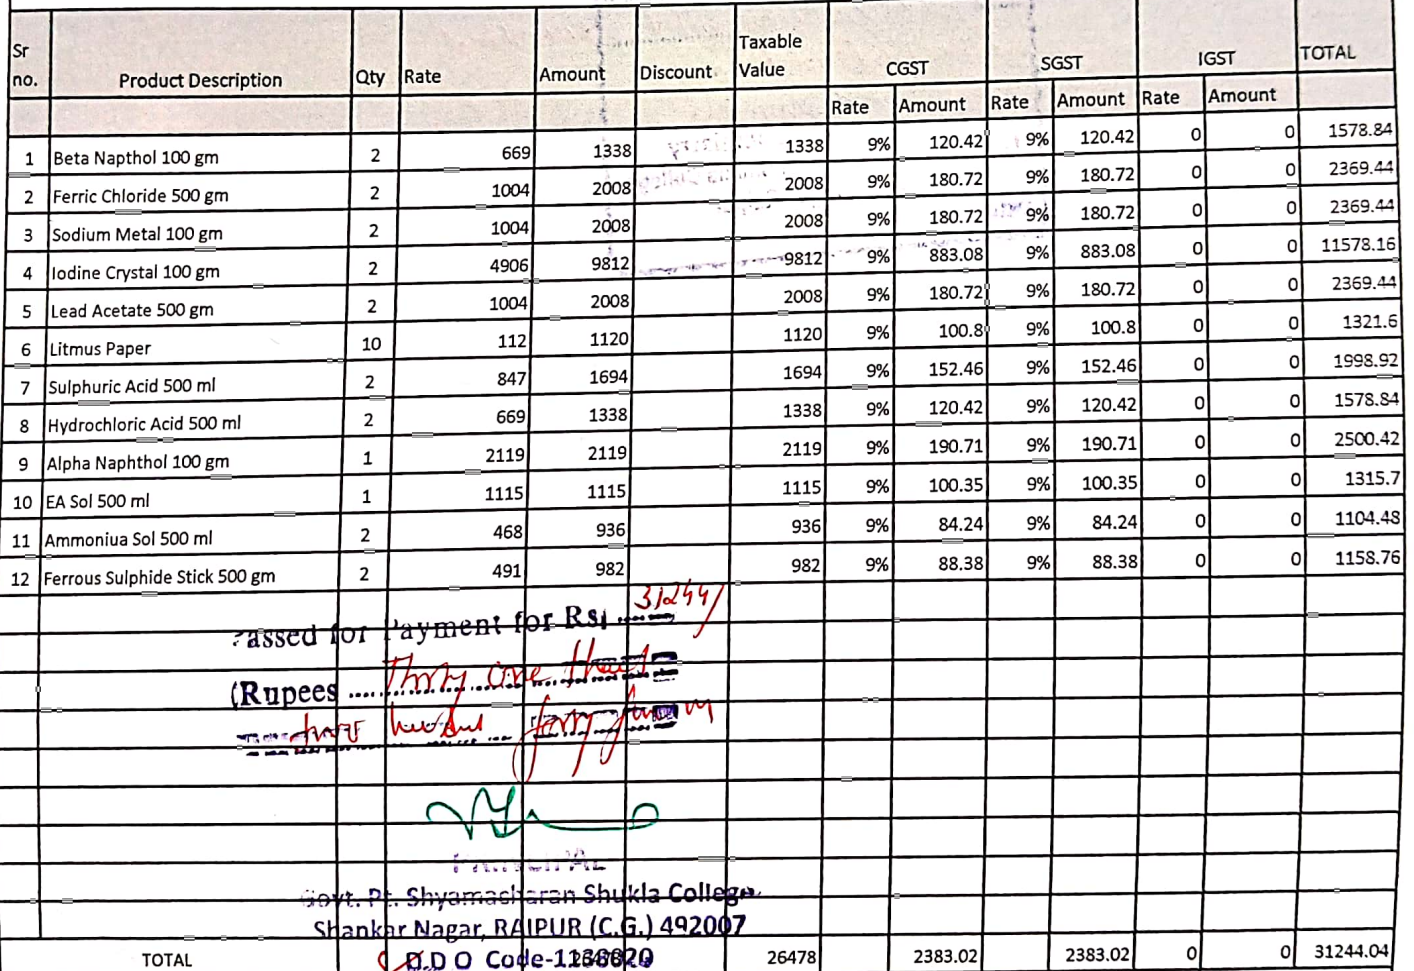 Sr no. Product Description Qty Rate Amount Discount Taxable Value CGST SGST IGST TOTAL
Rate Amount Rate Amount Rate Amount
1 Beta Napthol 100 gm 2 669 1338 1338 9% 120.42 9% 120.42 0 0 1578.84
2 Ferric Chloride 500 gm 2 1004 2008 2008 9% 180.72 9% 180.72 0 0 2369.44
3 Sodium Metal 100 gm 2 1004 2008 2008 9% 180.72 9% 180.72 0 0 2369.44
4 Iodine Crystal 100 gm 2 4906 9812 9812 9% 883.08 9% 883.08 0 0 11578.16
5 Lead Acetate 500 gm 2 1004 2008 2008 9% 180.72 9% 180.72 0 0 2369.44
6 Litmus Paper 10 112 1120 1120 9% 100.8 9% 100.8 0 0 1321.6
7 Sulphuric Acid 500 ml 2 847 1694 1694 9% 152.46 9% 152.46 0 0 1998.92
8 Hydrochloric Acid 500 ml 2 669 1338 1338 9% 120.42 9% 120.42 0 0 1578.84
9 Alpha Naphthol 100 gm 1 2119 2119 2119 9% 190.71 9% 190.71 0 0 2500.42
10 EA Sol 500 ml 1 1115 1115 1115 9% 100.35 9% 100.35 0 0 1315.7
11 Ammoniua Sol 500 ml 2 468 936 936 9% 84.24 9% 84.24 0 0 1104.48
12 Ferrous Sulphide Stick 500 gm 2 491 982 982 9% 88.38 9% 88.38 0 0 1158.76
Passed for Payment for Rs. 31244/
(Rupees Thirty One
forty
PRINCIPAL
Govt. Pt. Shyamacharan Shukla College
Shankar Nagar, RAIPUR (C.G.) 492007
D.D O Code-
TOTAL 26478 2383.02 2383.02 0 0 31244.04